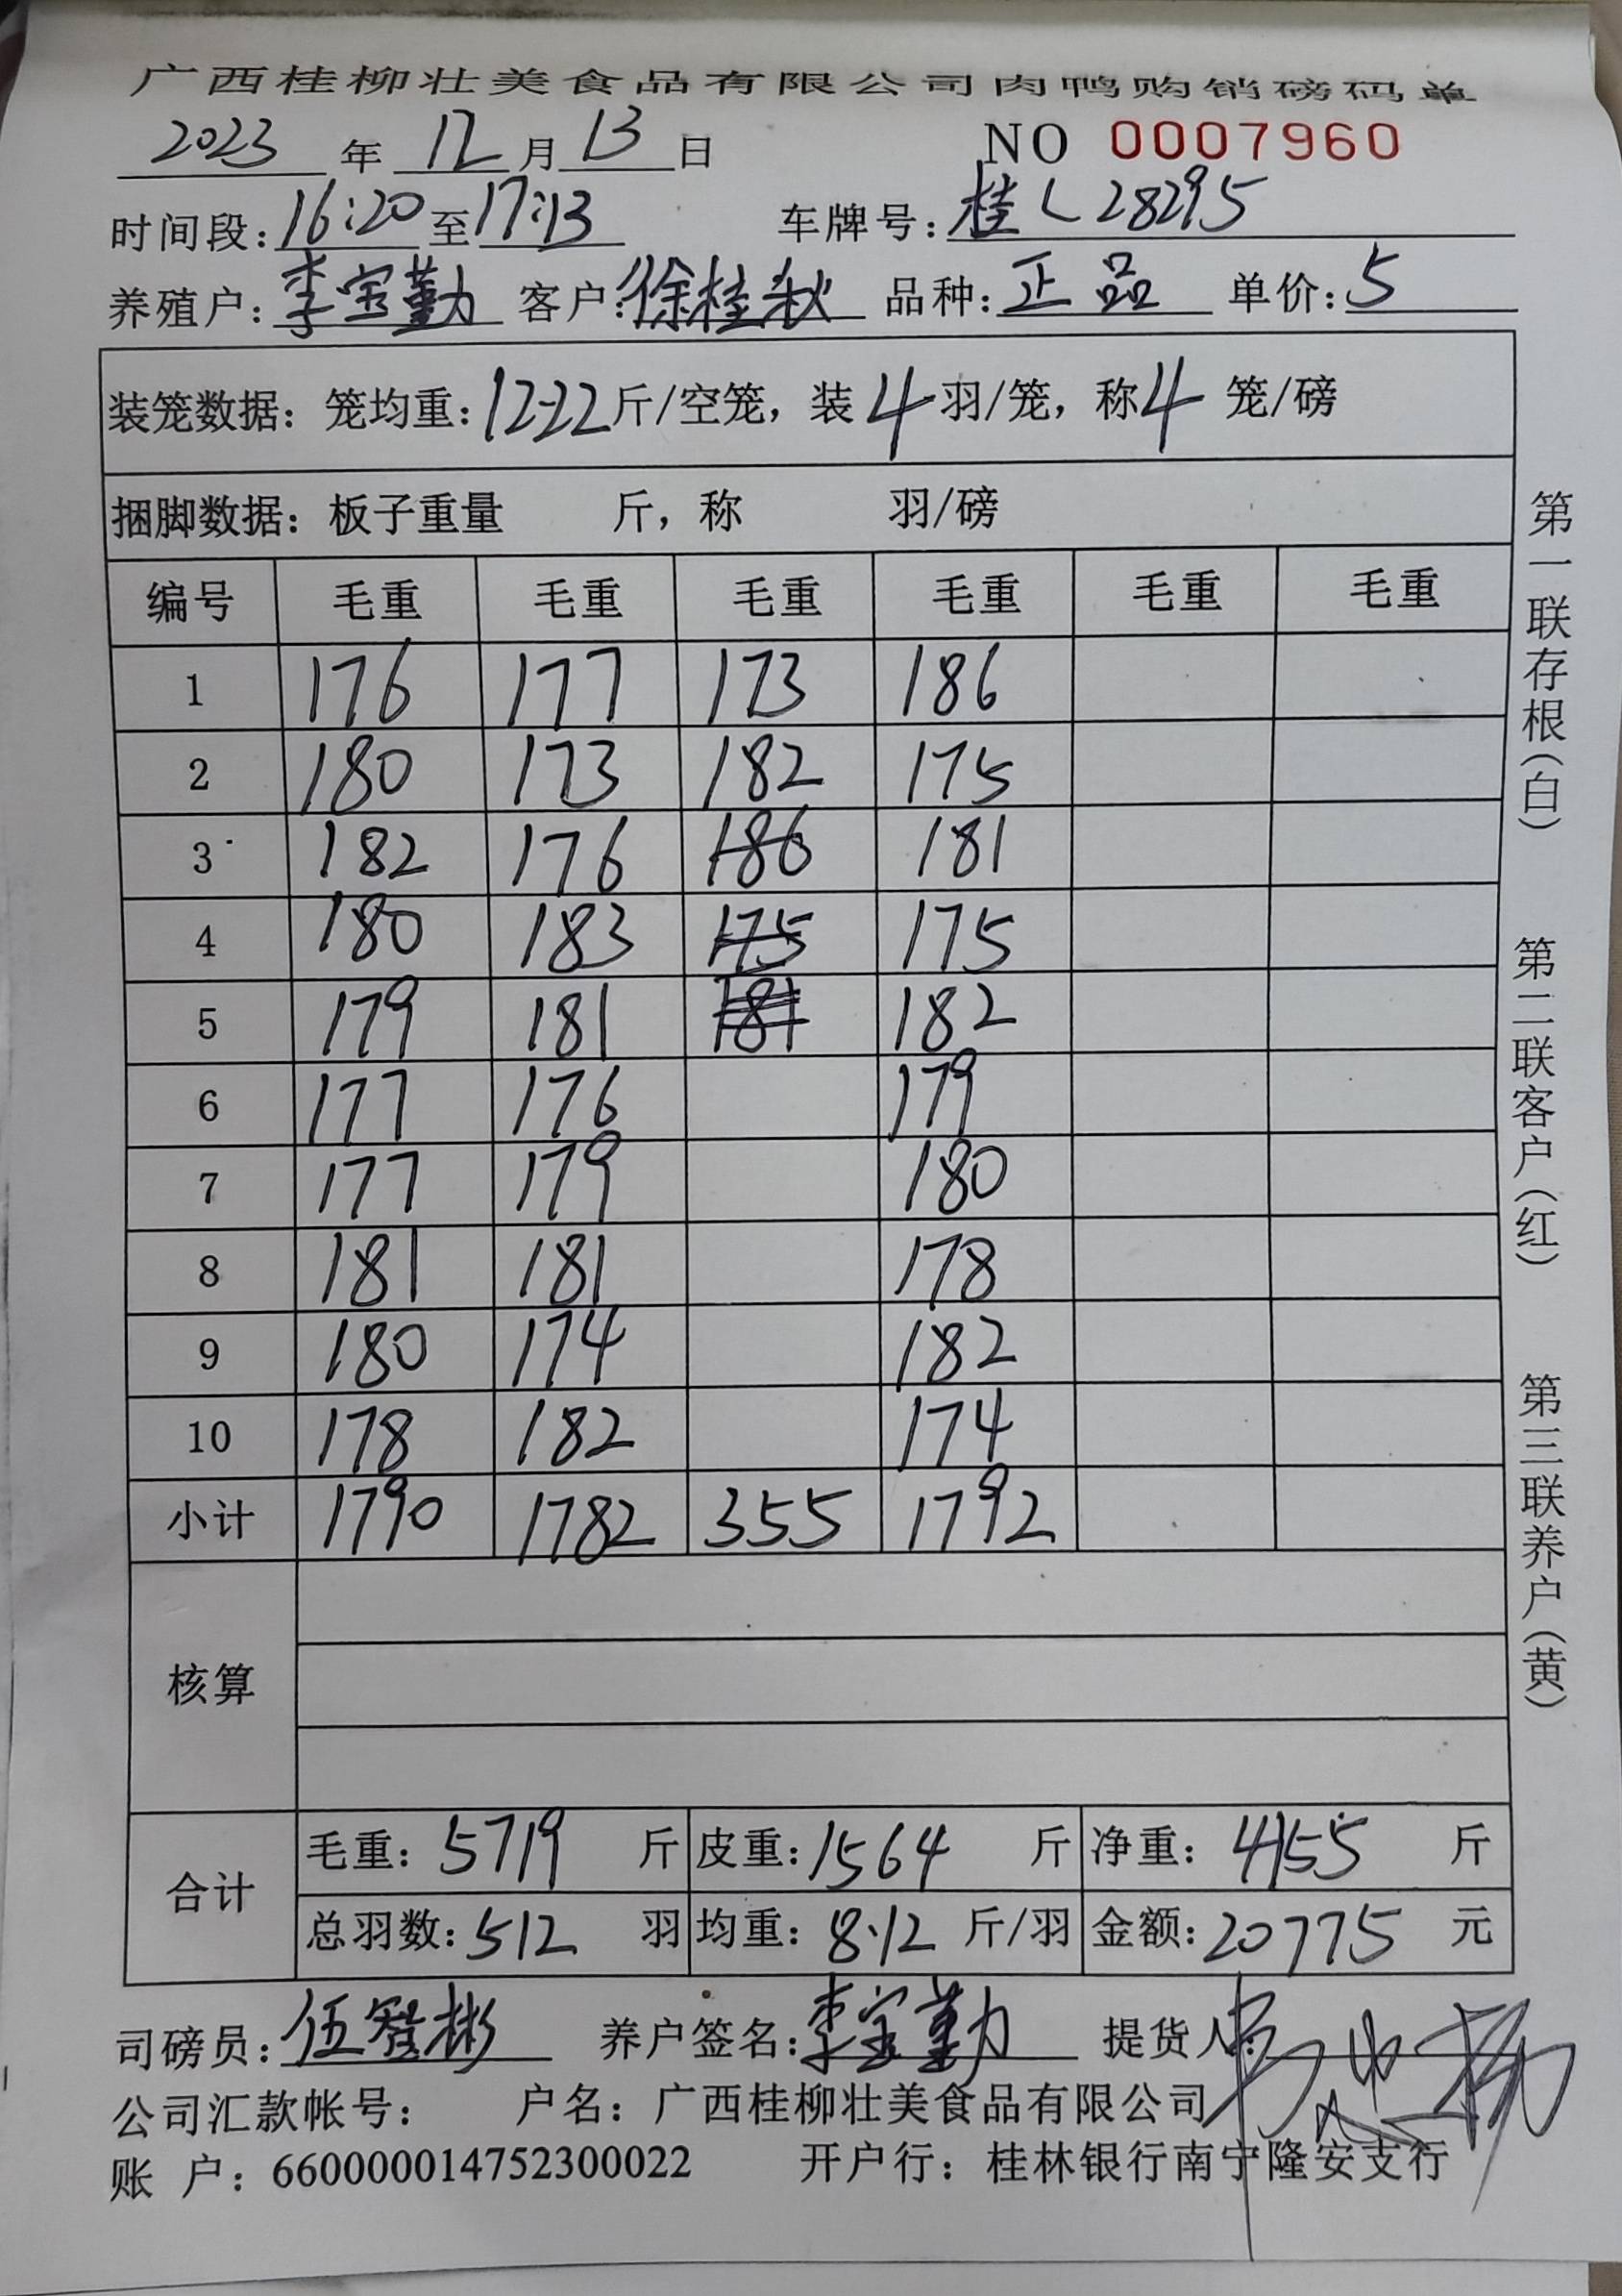 广西桂柳壮美食品有限公司肉鸭购销磅码单
2023 年 12 月 13 日 NO 0007960
时间段:16:20至17:13 车牌号:桂L28295
养殖户:李宝勤 客户:徐桂秋 品种:正品 单价:5
装笼数据:笼均重:12.22斤/空笼,装4羽/笼,称4笼/磅
捆脚数据:板子重量 斤,称 羽/磅
编号 毛重 毛重 毛重 毛重 毛重 毛重
1 176 177 173 186
2 180 173 182 175
3 182 176 186 181
4 180 183 175 175
5 179 181 181 182
6 177 176 179
7 177 179 180
8 181 181 178
9 180 174 182
10 178 182 174
小计 1790 1782 355 1792
核算
合计 毛重:5719 斤 皮重:1564 斤 净重:4155 斤
总羽数:512 羽 均重:8.12 斤/羽 金额:20775 元
司磅员:伍智彬 养户签名:李宝勤 提货人:
公司汇款帐号: 户名:广西桂柳壮美食品有限公司
账 户:660000014752300022 开户行:桂林银行南宁隆安支行
第一联存根(白) 第二联客户(红) 第三联养户(黄)